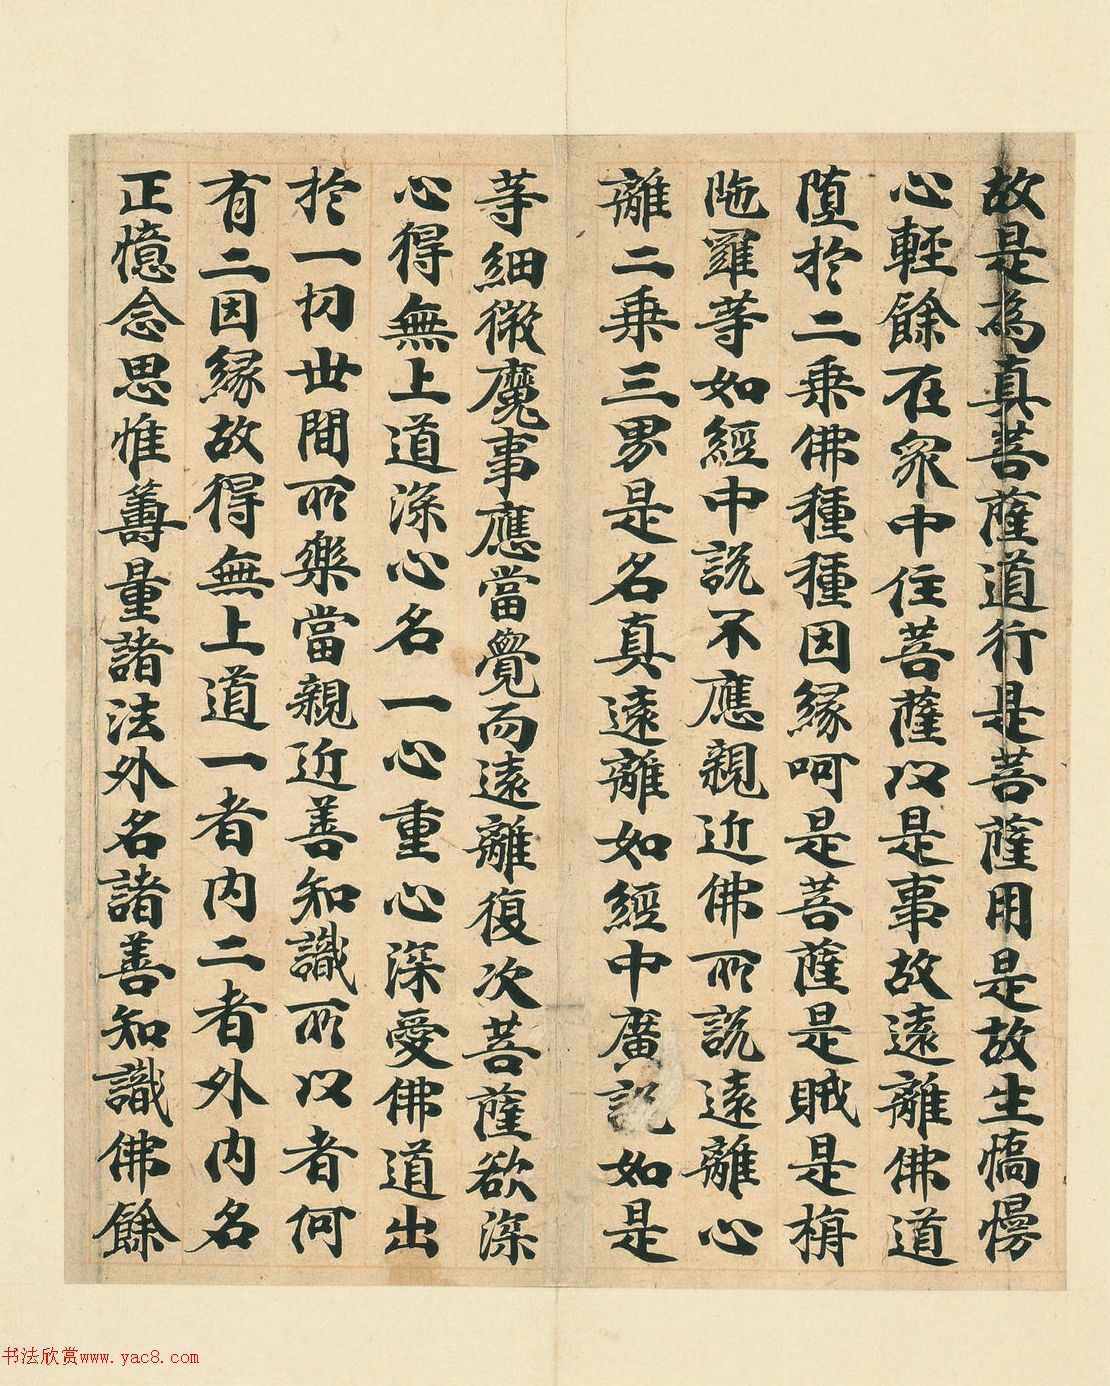 故是為真菩薩道行是菩薩用是故生憍慢
心輕餘在眾中住菩薩以是事故遠離佛道
墮於二乗佛種種因緣呵是菩薩是賊是栴
陁羅等如經中説不應親近佛所説遠離心
離二乗三界是名真遠離如經中廣説如是
等細微魔事應當覺而遠離復次菩薩欲深
心得無上道深心名一心重心深愛佛道出
於一切世間所樂當親近善知識所以者何
有二因緣故得無上道一者内二者外内名
正憶念思惟籌量諸法外名諸善知識佛餘
书法欣赏www.yac8.com